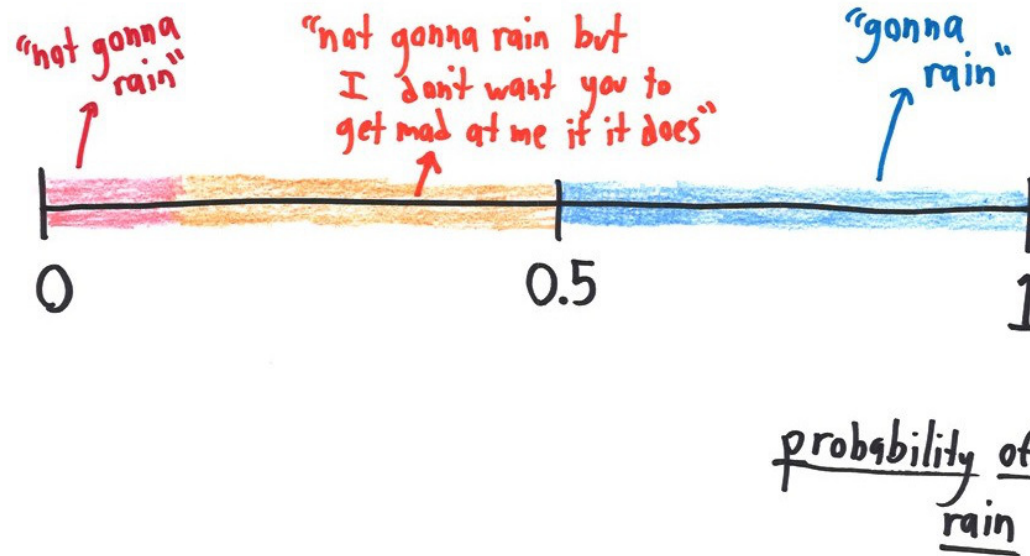 "not gonna
rain"
"not gonna rain but
I don't want you to
get mad at me if it does"
"gonna
rain"
0
0.5
1
probability of
rain